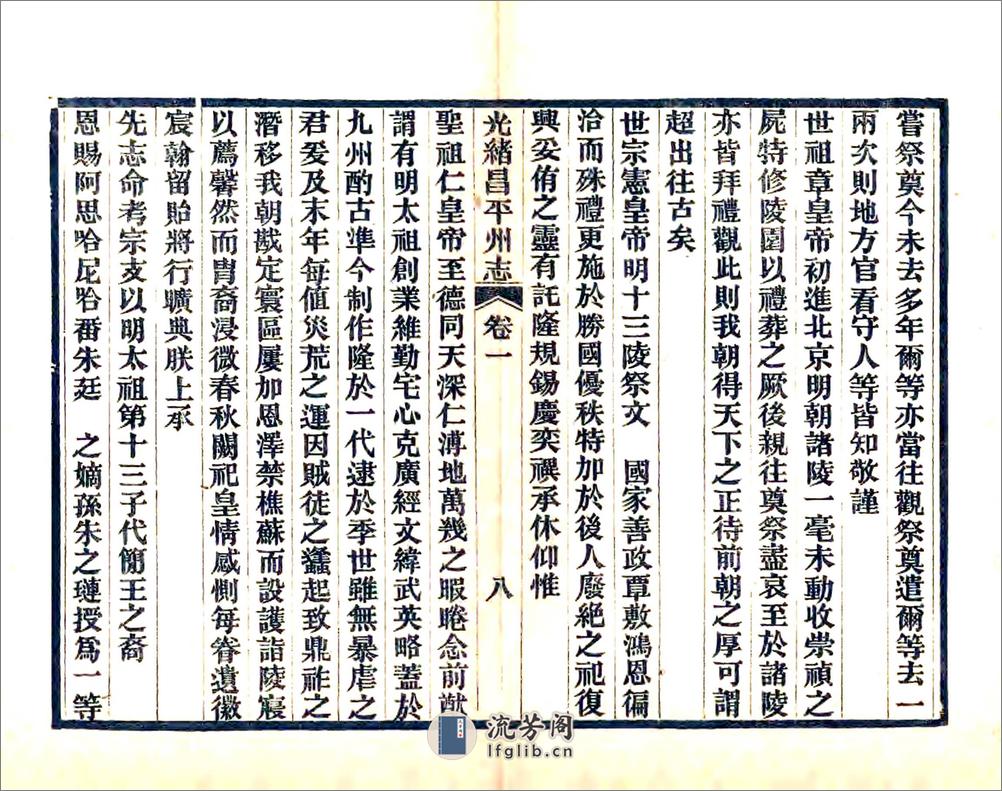 嘗祭奠今未去多年爾等亦當往觀祭奠遣爾等去一
兩次則地方官看守人等皆知敬謹
世祖章皇帝初進北京明朝諸陵一毫未動收崇禎之
屍特修陵園以禮葬之厥後親往奠祭盡哀至於諸陵
亦皆拜禮觀此則我朝得天下之正待前朝之厚可謂
超出往古矣
世宗憲皇帝明十三陵祭文　國家善政覃敷鴻恩徧
洽而殊禮更施於勝國優秩特加於後人廢絶之祀復
興妥侑之靈有託隆規錫慶奕禩承休仰惟
光緒昌平州志 卷一 八
聖祖仁皇帝至德同天深仁溥地萬幾之暇睠念前猷
謂有明太祖創業維勤宅心克廣經文緯武英略蓋於
九州酌古準今制作隆於一代逮於季世雖無暴虐之
君爰及末年每值災荒之運因賊徒之蠭起致鼎祚之
潛移我朝戡定寰區屢加恩澤禁樵蘇而設護詣陵寢
以薦馨然而胄裔浸微春秋闕祀皇情感惻每眷遺徽
宸翰留貽將行曠典朕上承
先志命考宗支以明太祖第十三子代簡王之裔
恩賜阿思哈尼哈番朱廷　之嫡孫朱之璉授爲一等
流芳阁
lfglib.cn